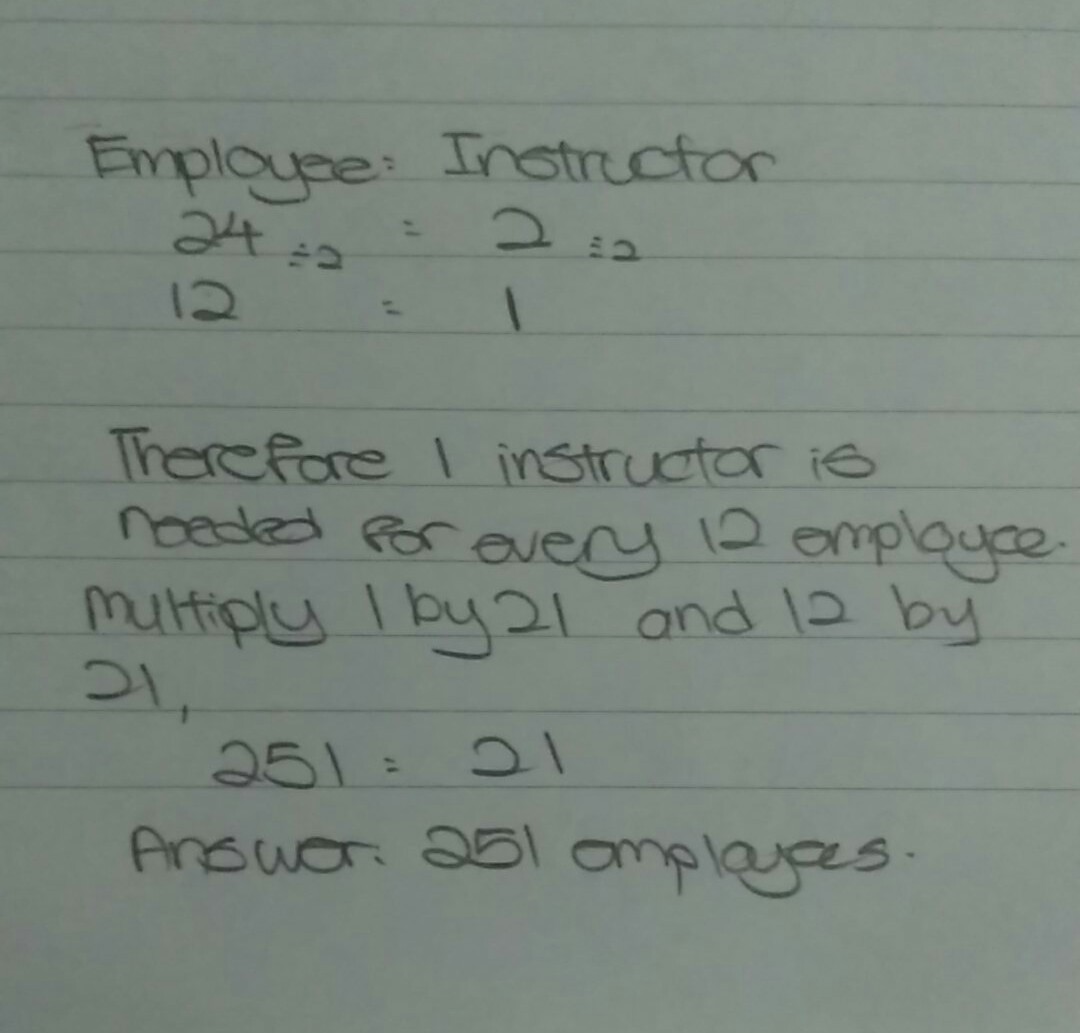 Employee: Instructor
24 ÷2 : 2 ÷2
12 : 1
Therefore 1 instructor is
needed for every 12 employee.
multiply 1 by 21 and 12 by
21,
251 : 21
Answer: 251 employees.